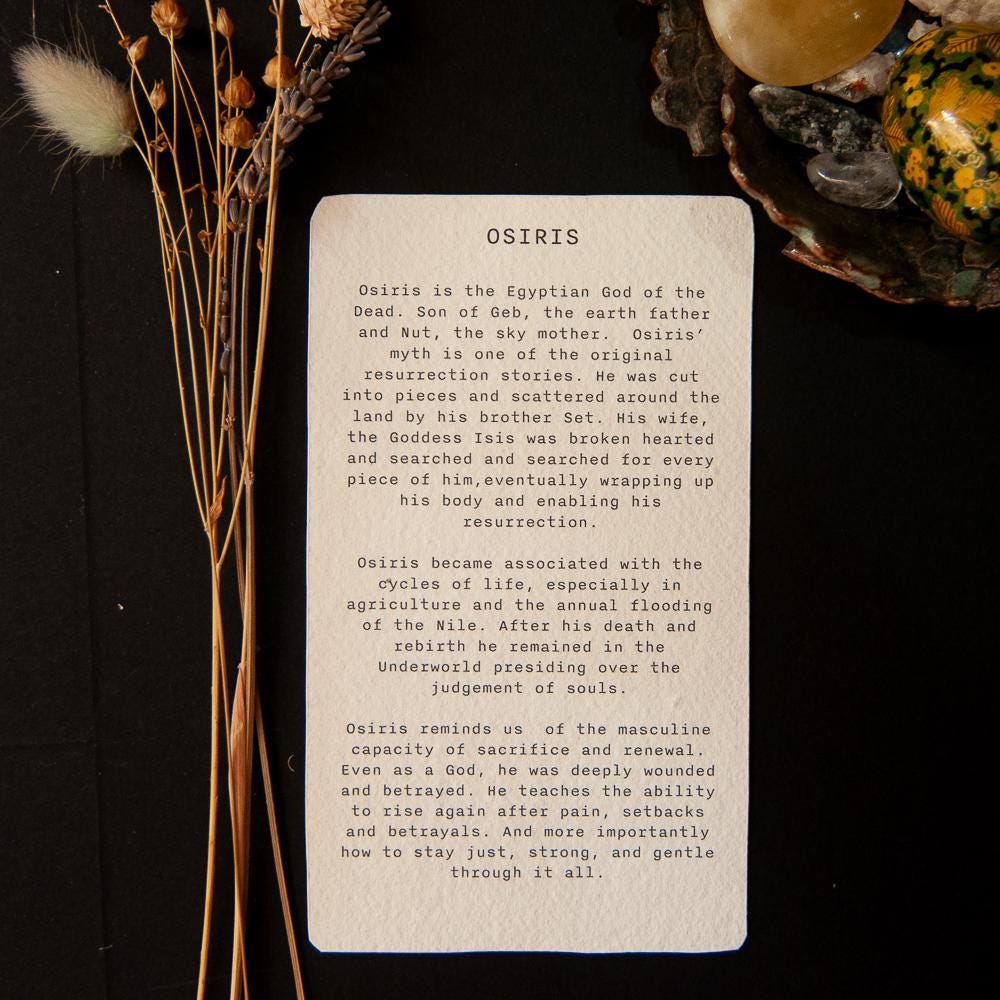 OSIRIS
Osiris is the Egyptian God of the
Dead. Son of Geb, the earth father
and Nut, the sky mother.  Osiris’
myth is one of the original
resurrection stories. He was cut
into pieces and scattered around the
land by his brother Set. His wife,
the Goddess Isis was broken hearted
and searched and searched for every
piece of him,eventually wrapping up
his body and enabling his
resurrection.
Osiris became associated with the
cycles of life, especially in
agriculture and the annual flooding
of the Nile. After his death and
rebirth he remained in the
Underworld presiding over the
judgement of souls.
Osiris reminds us  of the masculine
capacity of sacrifice and renewal.
Even as a God, he was deeply wounded
and betrayed. He teaches the ability
to rise again after pain, setbacks
and betrayals. And more importantly
how to stay just, strong, and gentle
through it all.